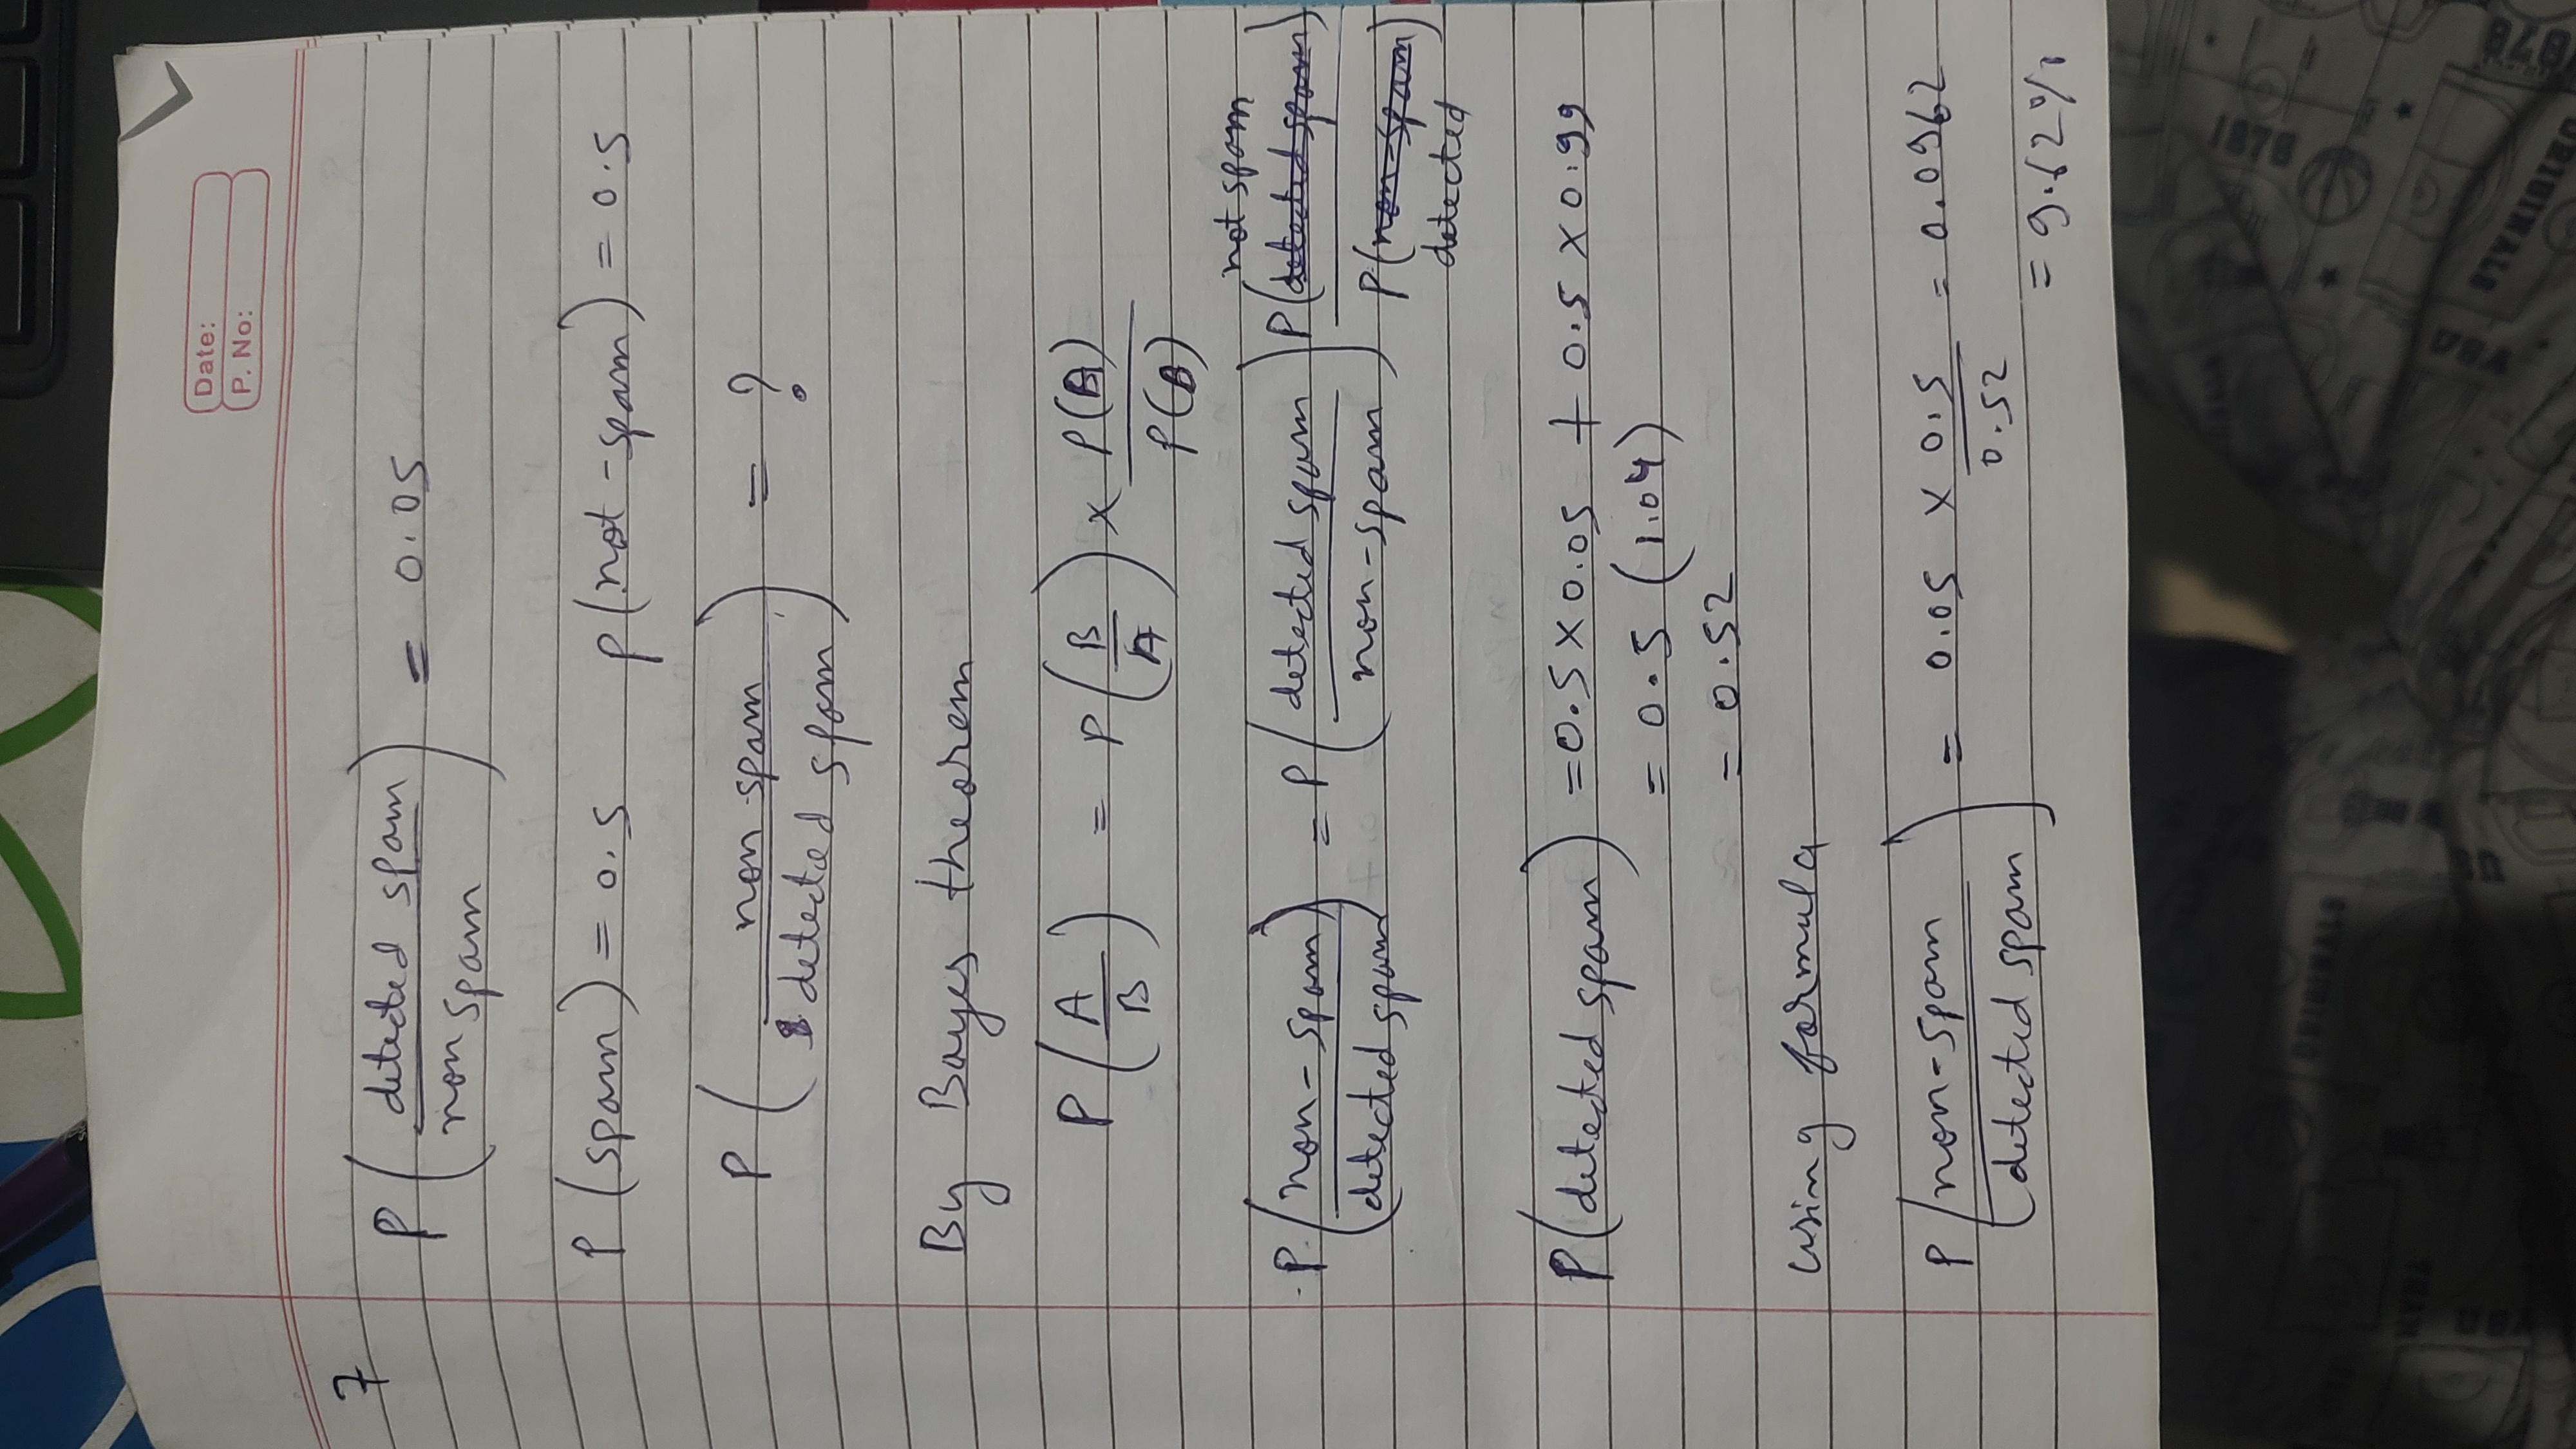 Date:
P. No:
7
P ( detected spam / non spam ) = 0.05
P (spam) = 0.5 P(not-spam) = 0.5
P ( non spam / detected spam ) = ?
By Bayes theorem
P ( A / B ) = P ( B / A ) × P(A) / P(B)
not spam
P ( non-spam / detected spam ) = P ( detected spam / non-spam ) P(detected spam) / P(non-spam)
detected
P(detected spam) = 0.5 × 0.05 + 0.5 × 0.99
= 0.5 (1.04)
= 0.52
using formula
P ( non-spam / detected spam ) = 0.05 × 0.5 / 0.52 = 0.0962
= 9.62%
ORIGINALS
1978
ORIGINALS